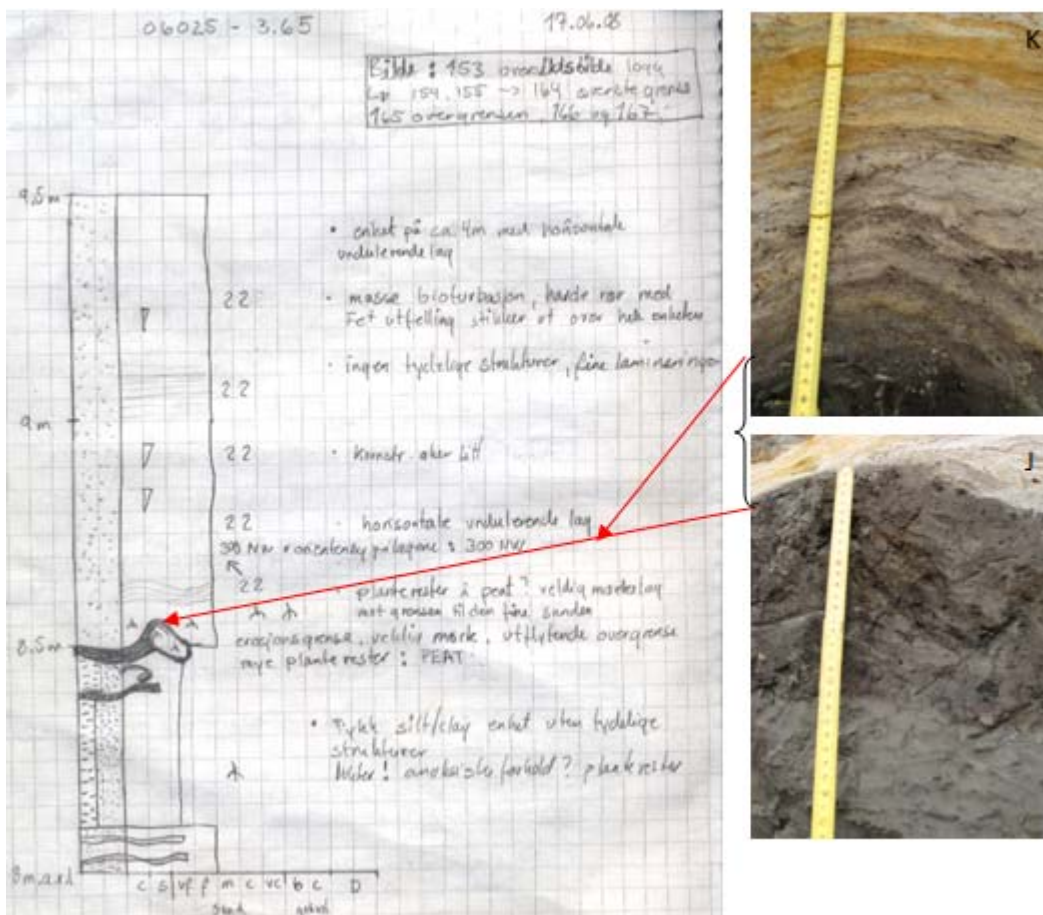 06025 - 3.65
17.06.08
Bilde : 153 oversiktsbilde logg
154, 155 -> 164 øverste grense
165 overgrensen, 166 og 167.
K
9,5 m
• enhet på ca. 4m med horisontale
undulerende lag
22
• masse bioturbasjon, harde rør med
Fe+ utfelling stikker ut over hele enheten
• ingen tydelige strukturer, fine lamineringer
22
9 m
22
• Kornstr. øker litt
J
22
• horisontale undulerende lag
NW orientering på lagene : 300 NW
22
• planterester i peat? veldig mørkt lag
mot grensen til den fine sanden
A
A
A
erosjonsgrense, veldig mørk, utflytende overgrense
8.5m
mye planterester : PEAT
• Tykk silt/clay enhet uten tydelige
strukturer
! anoksiske forhold? planterester
8 m.a.s.l
c s vf f m c vc b c D
sand